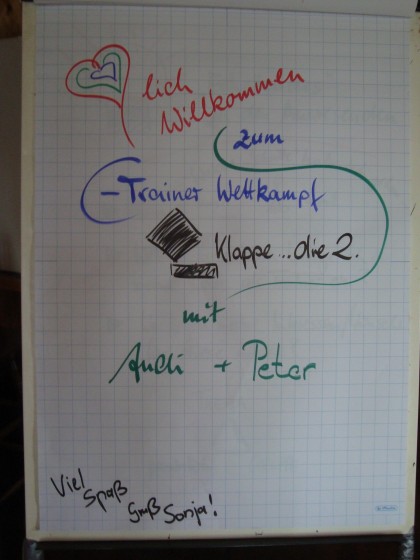 lich
Willkommen
zum
C-Trainer Wettkampf
Klappe...die 2.
mit
Andi + Peter
Viel
Spaß
Gruß Sonja!